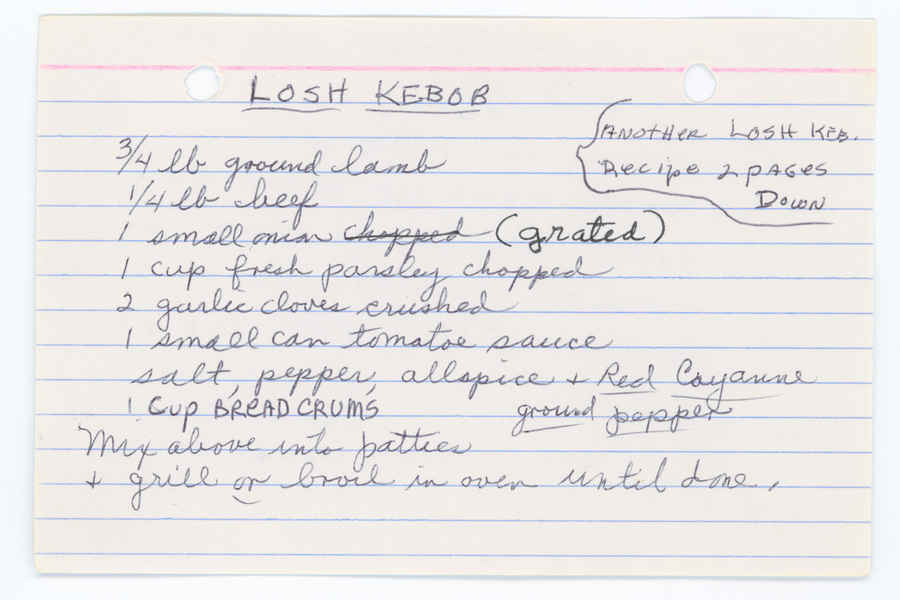 LOSH KEBOB
ANOTHER LOSH KEB.
RECIPE 2 PAGES
DOWN
3/4 lb ground lamb
1/4 lb beef
1 small onion chopped (grated)
1 cup fresh parsley chopped
2 garlic cloves crushed
1 small can tomatoe sauce
salt, pepper, allspice + Red Cayanne
ground pepper
1 Cup BREAD CRUMS
Mix above into patties
+ grill or broil in oven until done.